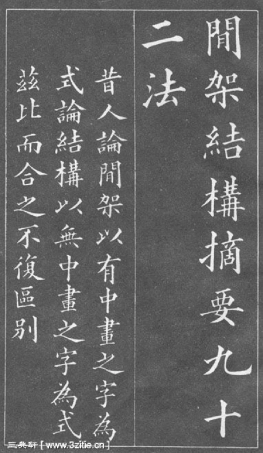 間架結構摘要九十
二法
昔人論間架以有中畫之字為
式論結構以無中畫之字為式
茲比而合之不復區別
三美軒【www.3zitie.cn】